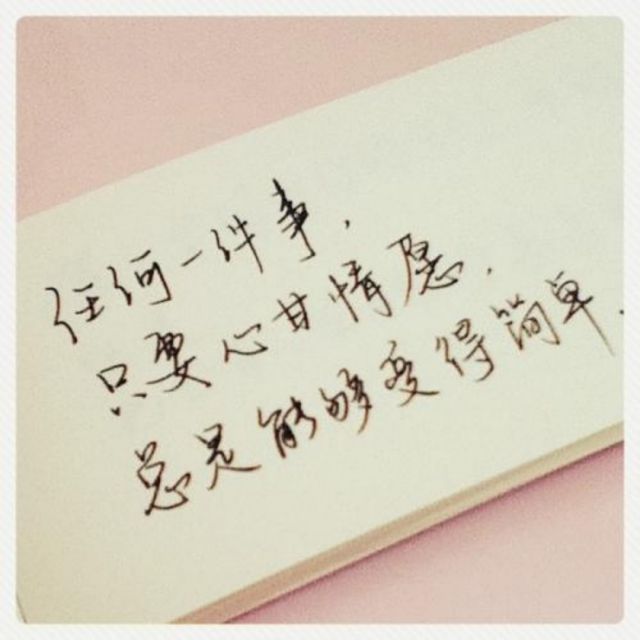 任何一件事，
只要心甘情愿，
总是能够变得简单．